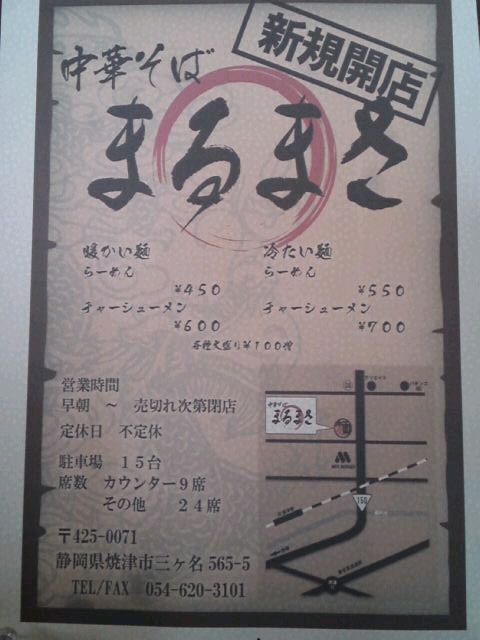 新規開店
中華そば
まるまさ
暖かい麺
らーめん
¥450
チャーシューメン
¥600
冷たい麺
らーめん
¥550
チャーシューメン
¥700
各種大盛り¥100増
営業時間
早朝 ～ 売切れ次第閉店
定休日 不定休
駐車場 15台
席数 カウンター9席
その他 24席
〒425-0071
静岡県焼津市三ヶ名565-5
TEL/FAX 054-620-3101
中華そば
まるまさ
MOS BURGER
150